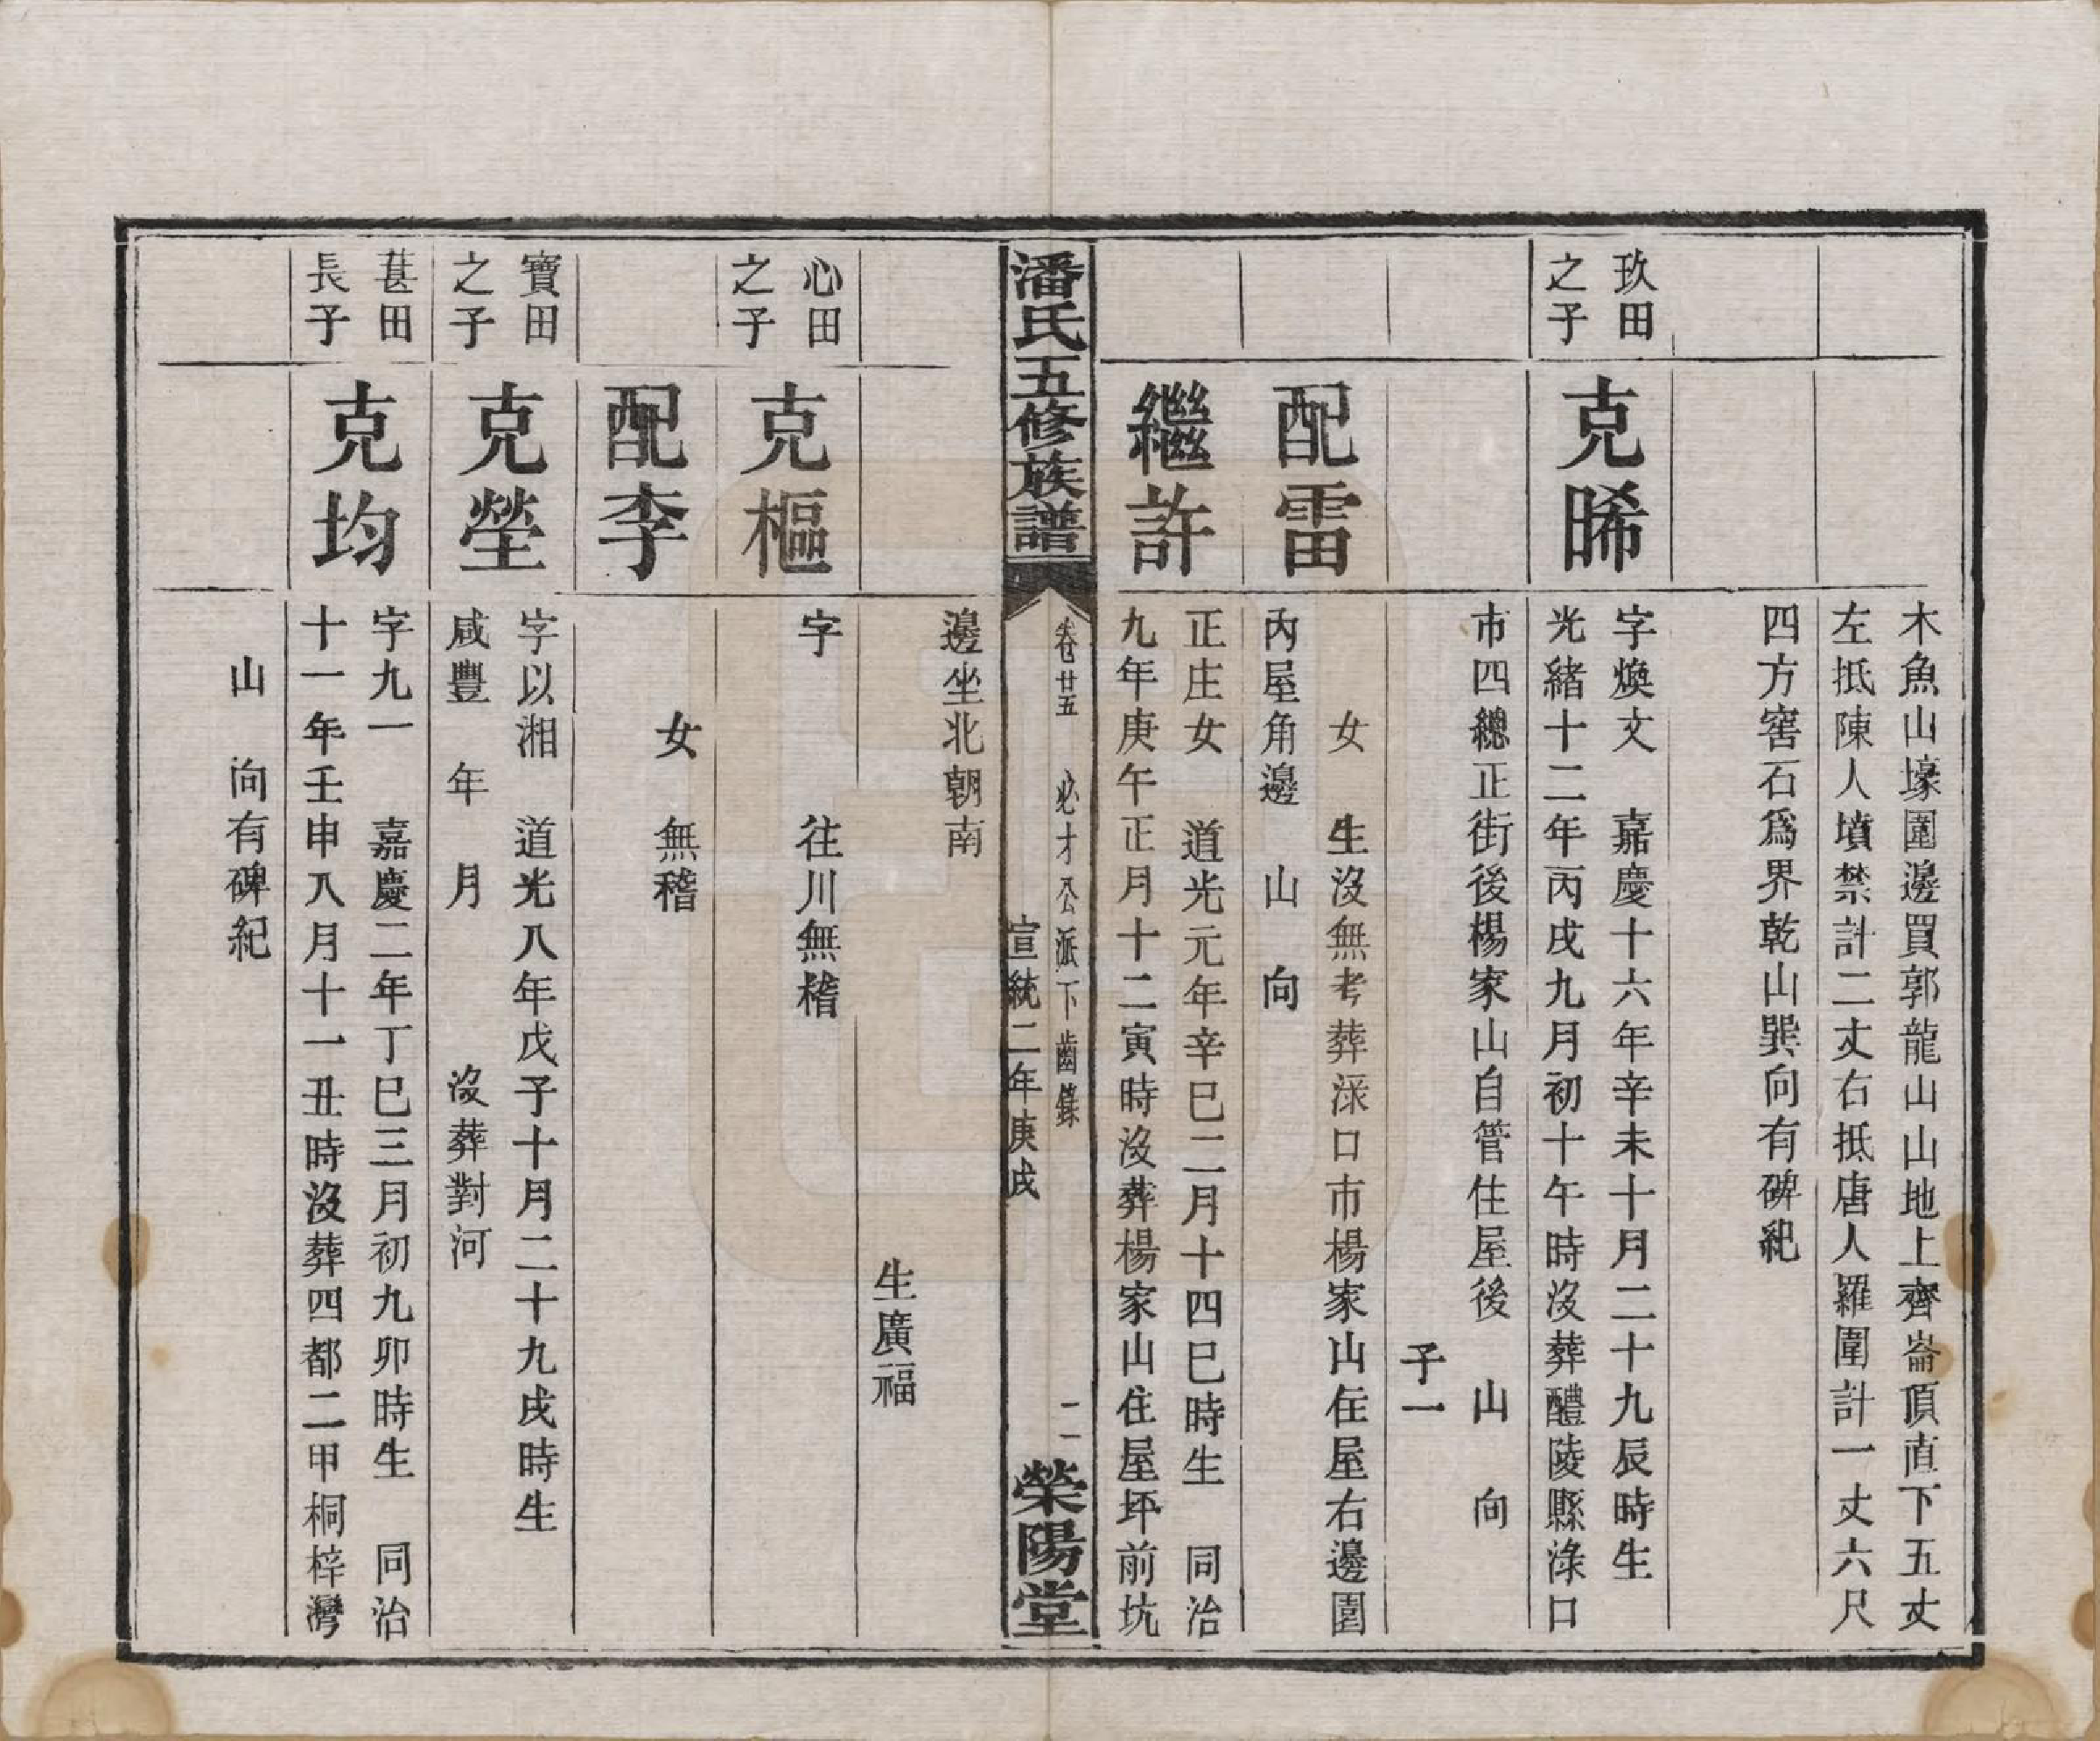 木魚山壕圍邊買郭龍山山地上齊崙頂直下五丈
左抵陳人墳禁計二丈右抵唐人羅圍計一丈六尺
四方窖石爲界乾山巽向有碑紀
玖田
之子
克晞
字煥文　嘉慶十六年辛未十月二十九辰時生
光緒十二年丙戌九月初十午時沒葬醴陵縣淥口
市四總正街後楊家山自管住屋後　山　向
子一
配雷
女　生沒無考葬淥口市楊家山住屋右邊園
內屋角邊　山　向
繼許
正庄女　道光元年辛巳二月十四巳時生　同治
九年庚午正月十二寅時沒葬楊家山住屋坪前坑
潘氏五修族譜
卷廿五　必才公派下齒錄
二
宣統二年庚戌
榮陽堂
邊坐北朝南
生廣福
心田
之子
克樞
字　往川無稽
配李
女　無稽
寶田
之子
克塋
字以湘　道光八年戊子十月二十九戌時生
咸豐　年　月　沒葬對河
葚田
長子
克均
字九一　嘉慶二年丁巳三月初九卯時生　同治
十一年壬申八月十一丑時沒葬四都二甲桐梓灣
山　向有碑紀